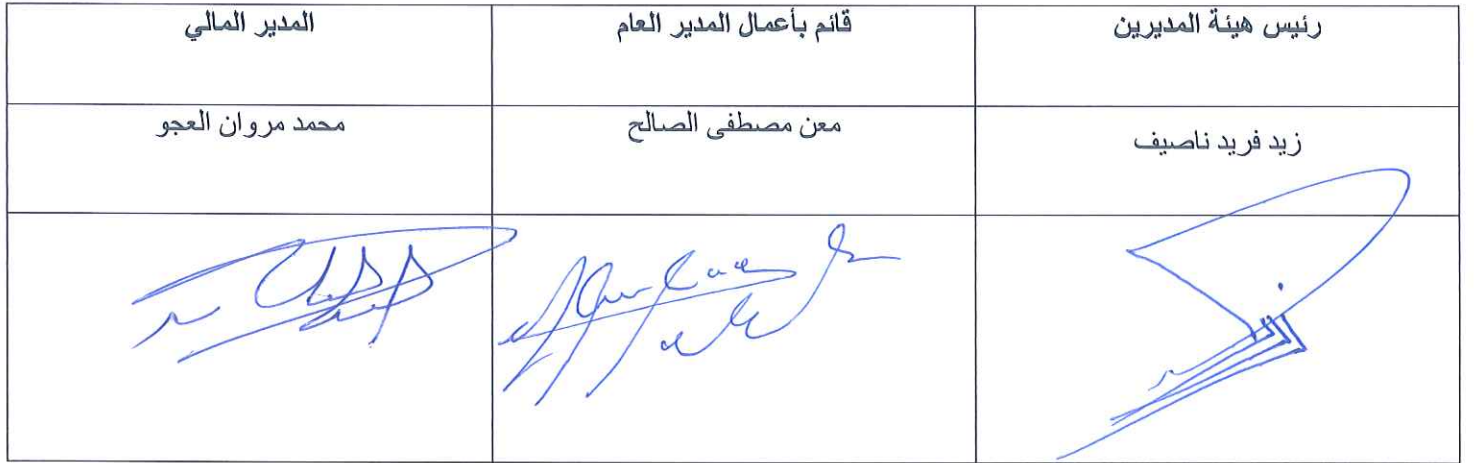 رئيس هيئة المديرين
قائم بأعمال المدير العام
المدير المالي
زيد فريد ناصيف
معن مصطفى الصالح
محمد مروان العجو